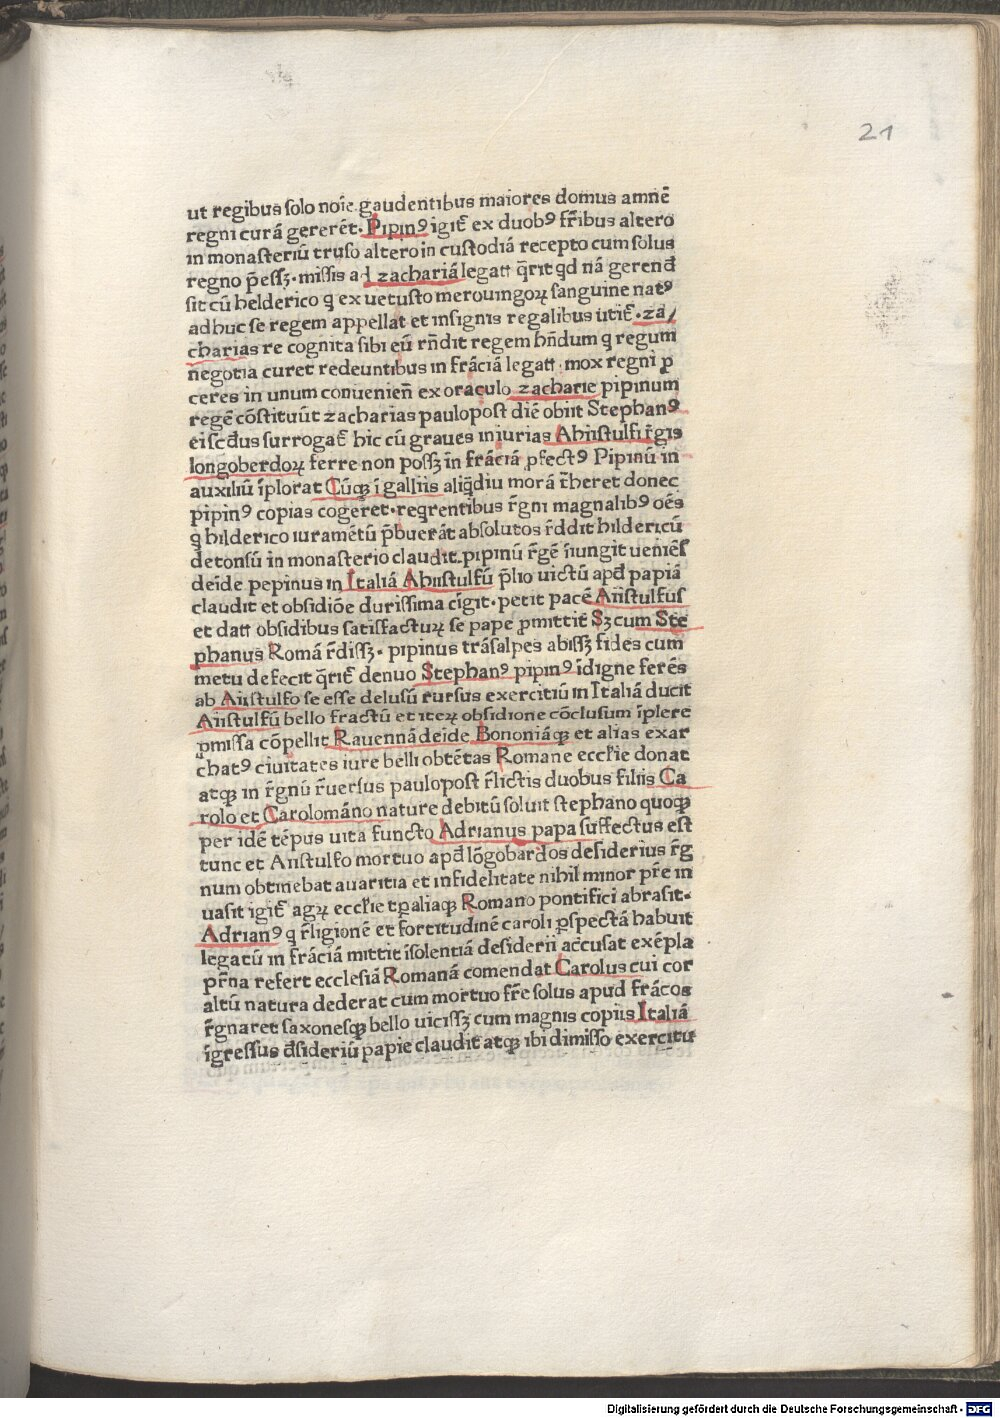 21
ut regibus solo noīe gaudentibus maiores domus amnē
regni curā gererēt. Pipinꝰ igit̄ ex duobꝰ fr̄ibus altero
in monasteriū truso altero in custodiā recepto cum solus
regno p̄essꝫ. missis ad zachariā legatt q̄rit qd nā gerend̄
sit cū helderico q̇ ex uetusto merouingoꝝ sanguine natꝰ
adhuc se regem appellat et insignis regalibus utit̄. za/
charias re cognita sibi eū rn̄dit regem hn̄dum q̇ regum
negotia curet redeuntibus in frāciā legatt . mox regni ꝓ
ceres in unum conuenien̄ ex oraculo zacharie pipinum
regē cōstituūt zacharias paulopost diē obiit Stephanꝰ
ei scd̄us surrogat̄ hic cū graues iniurias Ahiistulfi r̄gis
longoberdoꝝ ferre non possꝫ in frāciā ꝓfectꝰ Pipinū in
auxiliū īplorat Cūqꝫ ī galliis aliq̄diu morā tr̄heret donec
pipinꝰ copias cogeret. reqrentibus r̄gni magnalibꝰ oēs
q̇ hilderico iuramētū p̄buerāt absolutos r̄ddit hildericū
detonsū in monasterio claudit. pipinū r̄gē iīungit ueniēs
deīde pepinus in Italiā Ahiistulfū p̄lio uictū apd̄ papiā
claudit et obsidiōe durissima cīgit. petit pacē Aiistulfus
et datt obsidibus satisfactuꝝ se pape ꝓmittit Sꝫ cum Ste
phanus Romā r̄dissꝫ. pipinus trāsalpes abissꝫ fides cum
metu defecit q̄rit̄ denuo Stephanꝰ pipinꝰ īdigne ferēs
ab Aiistulfo se esse delusū rursus exercitiū in Italiā ducit
Aiistulfū bello fractū et iteꝝ obsidione cōclusum īplere
ꝓmissa cōpellit Rauennā deīde Bononiāqꝫ et alias exar
chatꝰ ciuitates iure belli obtētas Romane eccl̄ie donat
atqꝫ in r̄gnū r̄uersus paulopost r̄lictis duobus filiis Ca
rolo et Carolomāno nature debitū soluit stephano quoqꝫ
per idē tēpus uita functo Adrianus papa suffectus est
tunc et Aiistulfo mortuo apd̄ lōgobardos desiderius r̄g
num obtinebat auaritia et infidelitate nihil minor pr̄e in
uasit igit̄ agꝝ eccl̄ie tꝑaliaqꝫ Romano pontifici abrasit.
Adrianꝰ q̇ r̄ligionē et fortitudinē caroli ꝑspectā habuit
legatū in frāciā mittit īsolentiā desiderii accusat exēpla
pr̄na refert ecclesiā Romanā comendat Carolus cui cor
altū natura dederat cum mortuo fr̄e solus apud frācos
r̄gnaret saxonesqꝫ bello uicissꝫ cum magnis copiis Italiā
īgressus d̄sideriū papie claudit atqꝫ ibi dimisso exercitu
Digitalisierung gefördert durch die Deutsche Forschungsgemeinschaft - DFG